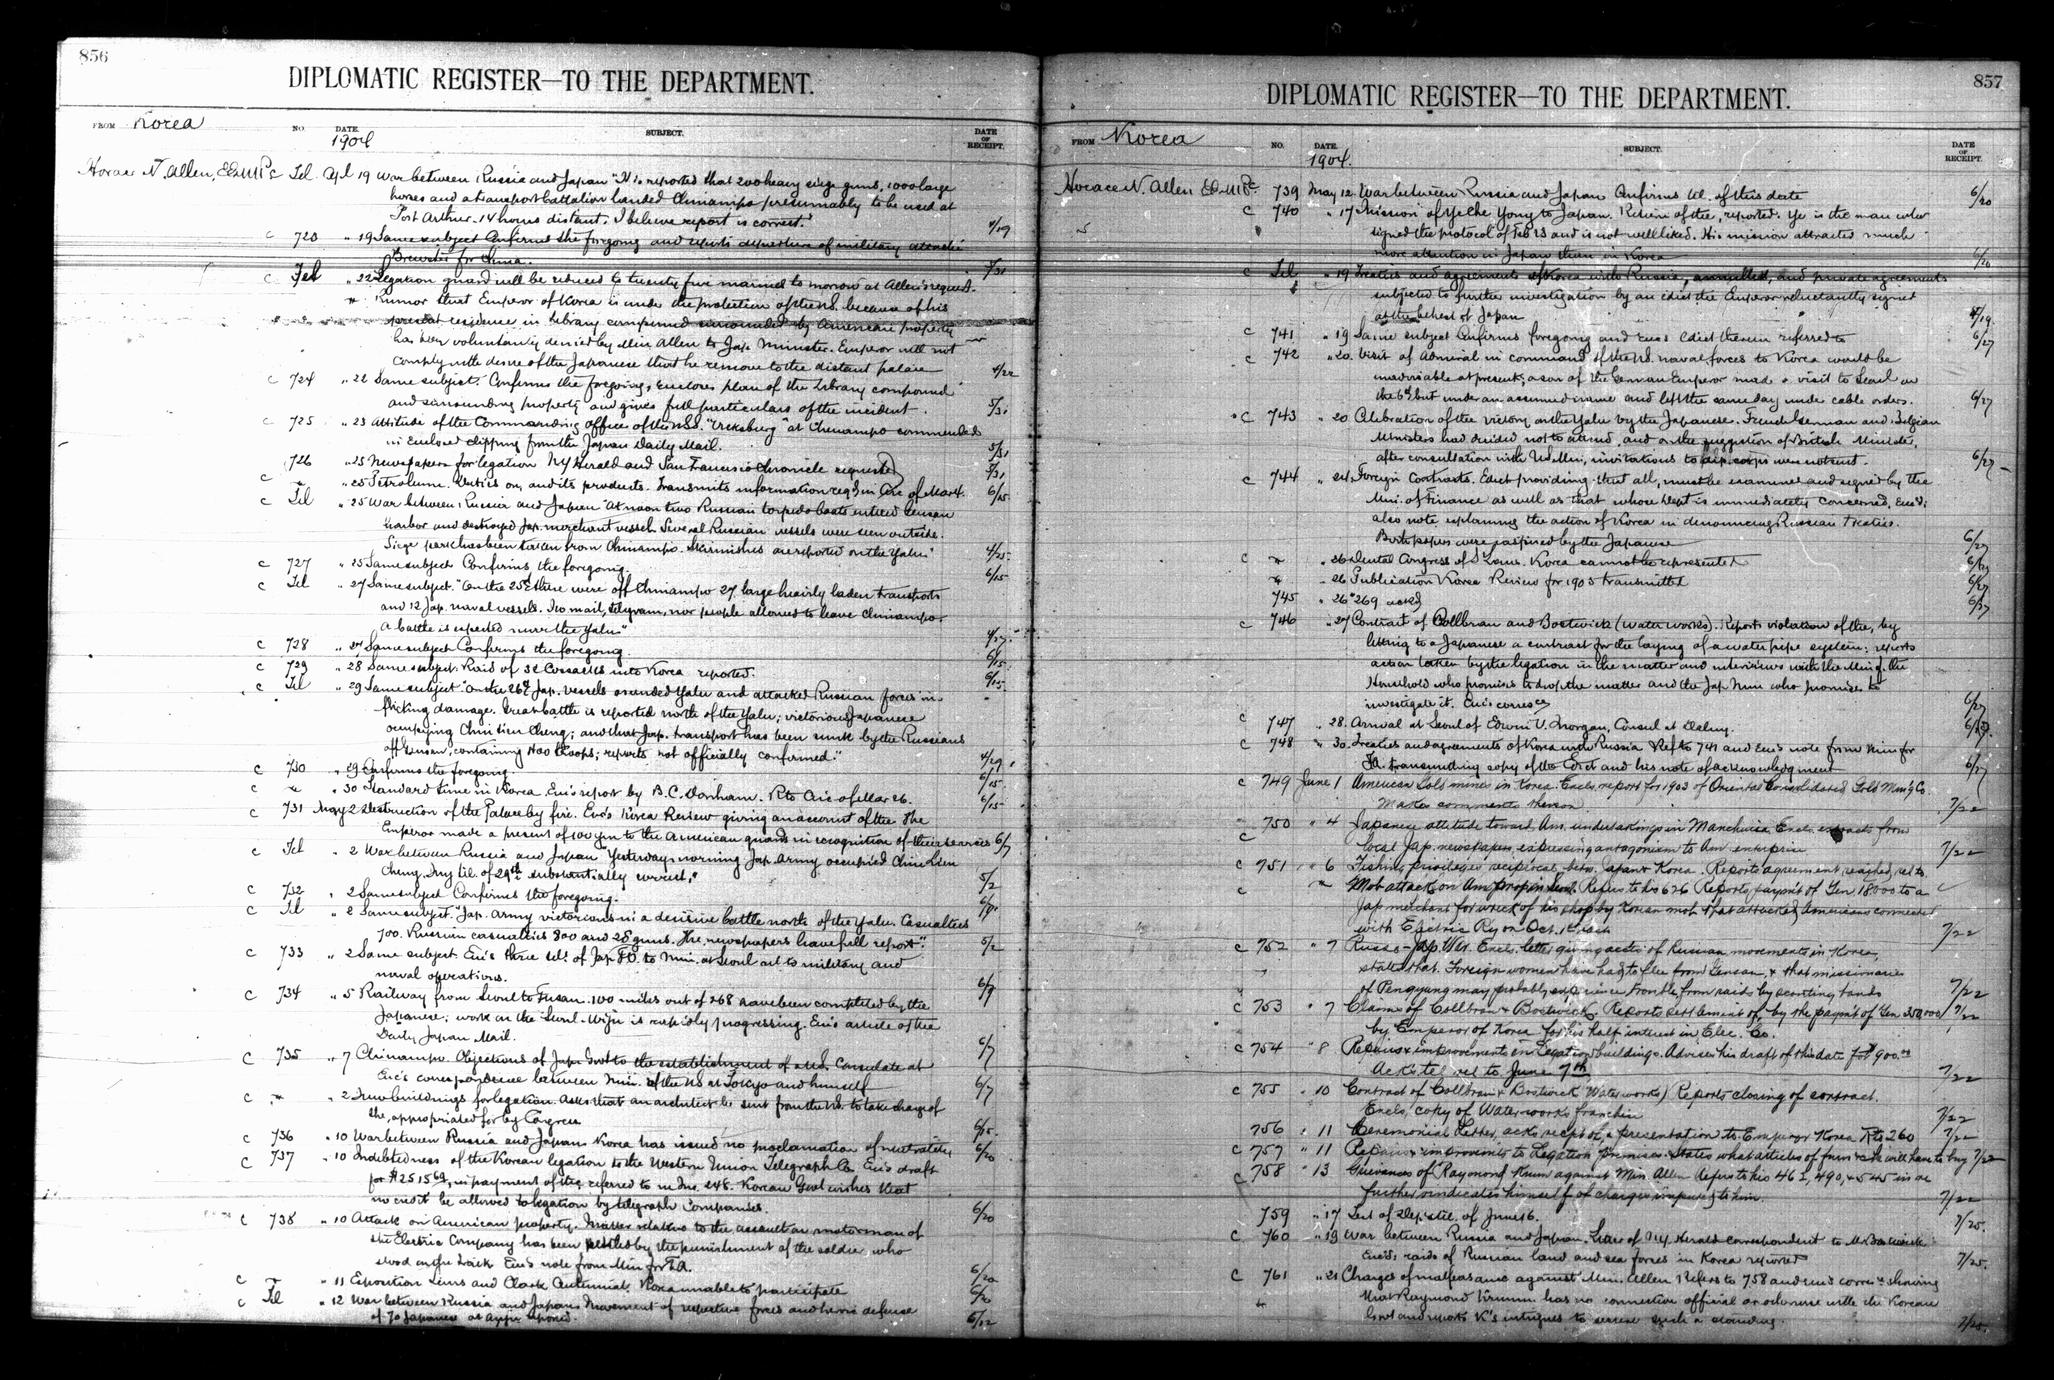 856
DIPLOMATIC REGISTER—TO THE DEPARTMENT.
FROM Korea NO. DATE. SUBJECT. DATE OF RECEIPT.
1904
Horace N. Allen, Tel Apl 19 War between Russia and Japan "It is reported that 200 heavy siege guns, 1000 large
horses and a transport battalion landed Chinampo presumably to be used at
Port Arthur. 14 hours distant. I believe report is correct." 4/19
c 720 " 19 Same subject Confirms the foregoing and reports departure of military attaché
Brewster for China. 5/31
c Tel " 22 Legation guard will be reduced to twenty five marines to morrow at Allen's request.
Rumor that Emperor of Korea is under the protection of the U.S. because of his
present residence in Library compound surrounded by American property
has been voluntarily denied by Min. Allen to Jap. Minister. Emperor will not
comply with desire of the Japanese that he remove to the distant palace 4/22
c 724 " 22 Same subject. Confirms the foregoing, encloses plan of the Library compound
and surrounding property and gives full particulars of the incident. 5/31
c 725 " 23 Attitude of the Commanding officer of the U.S.S. "Vicksburg" at Chinampo commended
in enclosed clipping from the Japan Daily Mail. 5/31
726 " 25 Newspapers for legation NY Herald and San Francisco Chronicle requested 5/31
c " " 25 Petroleum. Duties on, and its products. Transmits information reqd in Circ of Mar 4. 6/15
c Tel " 25 War between Russia and Japan "At noon two Russian torpedo boats entered Gensan
harbor and destroyed Jap. merchant vessel. Several Russian vessels were seen outside.
Siege park has been taken from Chinampo. Skirmishes are reported on the Yalu" 4/25
c 727 " 25 Same subject Confirms the foregoing. 6/15
c Tel " 27 Same subject. "On the 25th there were off Chinampo 27 large heavily laden transports
and 12 Jap. naval vessels. No mail, telegram, nor people allowed to leave Chinampo.
A battle is expected near the Yalu" 4/27
c 728 " 27 Same subject Confirms the foregoing. 6/15
c 729 " 28 Same subject. Raid of Cossacks into Korea reported. 6/15
c Tel " 29 Same subject. "On the 26th Jap. vessels ascended Yalu and attacked Russian forces in-
flicting damage. Great battle is reported north of the Yalu; victorious Japanese
occupying Chin tien Cheng; and that Jap. transport has been sunk by the Russians
off Gensan, containing troops; reports not officially confirmed." 4/29
c 730 " 29 Confirms the foregoing. 6/15
c " " 30 Standard time in Korea Enc's report by B.C. Donham. R to Circ of Mar 26. 6/15
c 731 May 2 Destruction of the Palace by fire. Enc's Korea Review giving an account of the The
Emperor made a present of 100 yen to the American guards in recognition of their services 6/7
c Tel " 2 War between Russia and Japan "Yesterday morning Jap. Army occupied Chin tien
Cheng. My tel. of 29th substantially correct." 5/2
c 732 " 2 Same subject Confirms the foregoing. 6/9
c Tel " 2 Same subject. "Jap. Army victorious in a decisive battle north of the Yalu. Casualties
700. Russian casualties 800 and 28 guns. The newspapers have full report". 5/2
c 733 " 2 Same subject. Enc's three tels of Jap FO to Min. at Seoul as to military and
naval operations. 6/9
c 734 " 5 Railway from Seoul to Fusan. 100 miles out of 268 have been completed by the
Japanese; work on the Seoul-Wiju is rapidly progressing. Enc's article of the
Daily Japan Mail. 6/7
c 735 " 7 Chinampo. Objections of Jap. Govt to the establishment of a U.S. Consulate at
Enc's correspondence between Min. of the US at Tokyo and himself 6/7
c " " 2 New buildings for legation. Asks that an architect be sent from the U.S. to take charge of
the, appropriated for by Congress
c 736 " 10 War between Russia and Japan Korea has issued no proclamation of neutrality 6/20
c 737 " 10 Indebtedness of the Korean legation to the Western Union Telegraph Co. Enc's draft
for in payment of the, referred to in Ins. 248. Korean Govt wishes that
no credit be allowed to legation by telegraph companies. 6/20
c 738 " 10 Attack on American property. Matter relative to the assault on motorman of
the Electric Company has been settled by the punishment of the soldier, who
stood on the track Enc's note from Min for F.A. 6/20
c " " 11 Exposition Lewis and Clark Centennial Korea unable to participate 6/20
c Tel " 12 War between Russia and Japan Movement of respective forces and heroic defense
of 70 Japanese at reported.
857
DIPLOMATIC REGISTER—TO THE DEPARTMENT.
FROM Korea NO. DATE. SUBJECT. DATE OF RECEIPT.
1904.
Horace N. Allen 739 May 12 War between Russia and Japan Confirms tel. of this date 6/20
c 740 " 17 "Mission" of Ye Che Yong to Japan. Return of the, reported. Ye is the man who
signed the protocol of Feb 23 and is not well liked. His mission attracted much
more attention in Japan than in Korea 6/20
c Tel " 19 Treaties and agreements of Korea with Russia, annulled, and private agreements
subjected to further investigation by an edict the Emperor reluctantly signed
at the behest of Japan
c 741 " 19 Same subject Confirms foregoing and encs edict therein referred to 6/27
c 742 " 20 Visit of Admiral in command of the U.S. naval forces to Korea would be
inadvisable at present; a son of the German Emperor made a visit to Seoul on
the 6th but under an assumed name and left the same day under cable orders. 6/27
c 743 " 20 Celebration of the victory on the Yalu by the Japanese. French German and Belgian
Ministers had decided not to attend, and on the suggestion of British Minister,
after consultation with US Min, invitations to dip. corps were not sent. 6/27
c 744 " 24 Foreign Contracts. Edict providing that all, must be examined and signed by the
Min. of Finance as well as that whose Dept is immediately concerned, Enc's;
also note explaining the action of Korea in denouncing Russian treaties.
Both papers were inspired by the Japanese 6/27
c " " 26 Dental Congress of St Louis. Korea cannot be represented 6/27
" " 26 Publication Korea Review for 1903 transmitted 6/27
745 " 26 " 269 ackd 6/27
c 746 " 27 Contract of Collbran and Bostwick (Water works). Reports violation of the, by
letting to a Japanese a contract for the laying of a water pipe system; reports
action taken by the legation in the matter and interviews with the Min of the
Household who promises to drop the matter and the Jap Min who promises to
investigate it. Enc's corresce 6/27
c 747 " 28. Arrival at Seoul of Edwin V. Morgan, Consul at Dalny. 6/27
c 748 " 30. Treaties and agreements of Korea with Russia Ref to 741 and Enc's note from Min for
F.A. transmitting copy of the Edict and his note of acknowledgment 6/27
c 749 June 1 American Gold mines in Korea. Encls. report for 1903 of Oriental Consolidated Gold Min'g Co.
Makes comments thereon 7/22
750 " 4 Japanese attitude toward Am. undertakings in Manchuria Encl. extracts from
c local Jap. newspapers, expressing antagonism to Am. enterprise 7/22
c 751 " 6 Fishing privileges reciprocal betw. Japan & Korea. Reports agreement reached rel to
c " Mob attack on Am. prop in Seoul Refers to his 626 Reports payment of Yen 18000 to a
Jap merchant for wreck of his shop by Korean mob that attacked Americans connected
with Electric Ry on Oct. 1st last 7/22
c 752 " 7 Russo-Jap War. Encl. letter giving acct of Russian movements in Korea,
states that Foreign women have had to flee from Gensan, & that missionaries
of Pengyang may probably experience trouble from raids by scouting bands 7/22
c 753 " 7 Claims of Collbran & Bostwick. Reports settlement of, by the payment of Yen 350,000 7/22
by Emperor of Korea for his half interest in Elec. Co.
c 754 " 8 Repairs & improvements in Legation buildings. Advises his draft of this date for $900.00
Acks tel rel to June 7th 7/22
c 755 " 10 Contract of Collbran & Bostwick (Waterworks) Reports closing of contract.
Encls. copy of Waterworks franchise 7/22
756 " 11 Ceremonial Letter, acks recpt of, & presentation to Emperor Korea R to 260 7/22
c 757 " 11 Repairs & improvements to Legation premises. States what articles of furn &c he will have to buy 7/22
c 758 " 13 Grievances of Raymond Krum against Min. Allen Refers to his 462, 490, & 545 in re
further vindicates himself of charges imputed to him. 7/22
759 " 17 Dept's tel. of June 16. 7/25.
c 760 " 19 War between Russia and Japan. Letter of N.Y. Herald correspondent to Mr Bostwick
Enc's; raids of Russian land and sea forces in Korea reported 7/25.
c 761 " 21 Charges of malfeasance against Min. Allen Refers to 758 and encs corresce showing
that Raymond Krumm has no connection official or otherwise with the Korean
Govt and reports K's intrigues to secure such a standing. 7/25.